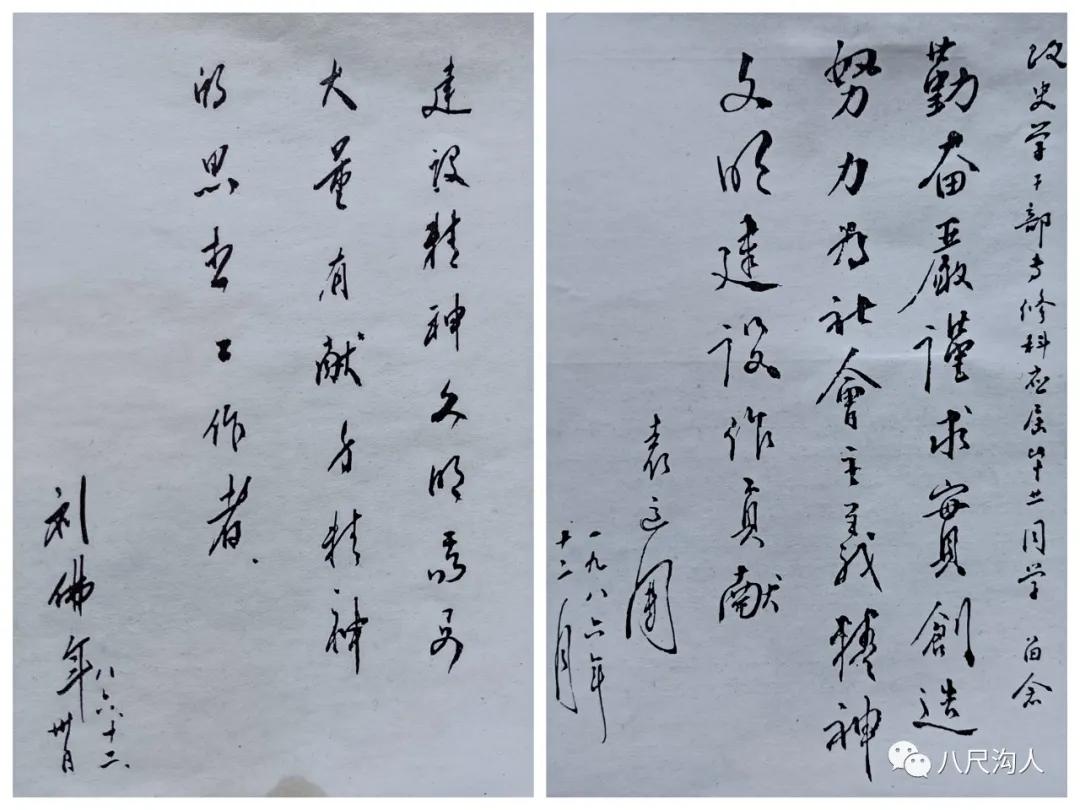 建设精神文明需要
大量有献身精神
的思想工作者.
刘佛年
八六、十二、
卅日
政史学干部专修科应届毕业同学 留念
勤奋嚴谨求實創造
努力為社會主義精神
文明建设作貢献
袁运開
一九八六年
十二月
八尺沟人